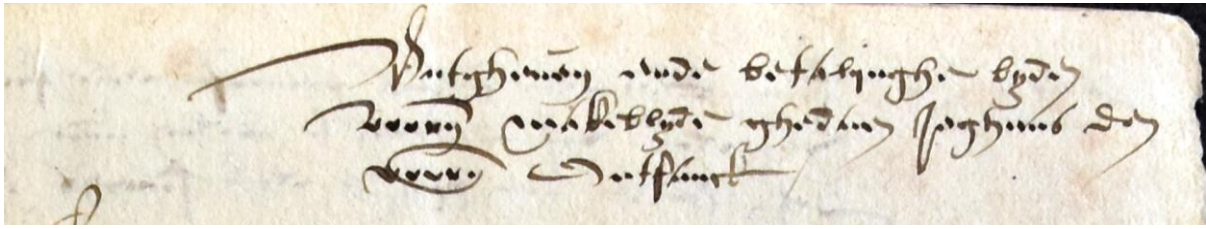 Vutgheven ende betalinghe byde
voorn makelkyde ghedaen Jeghens den
voorn Ontfanck